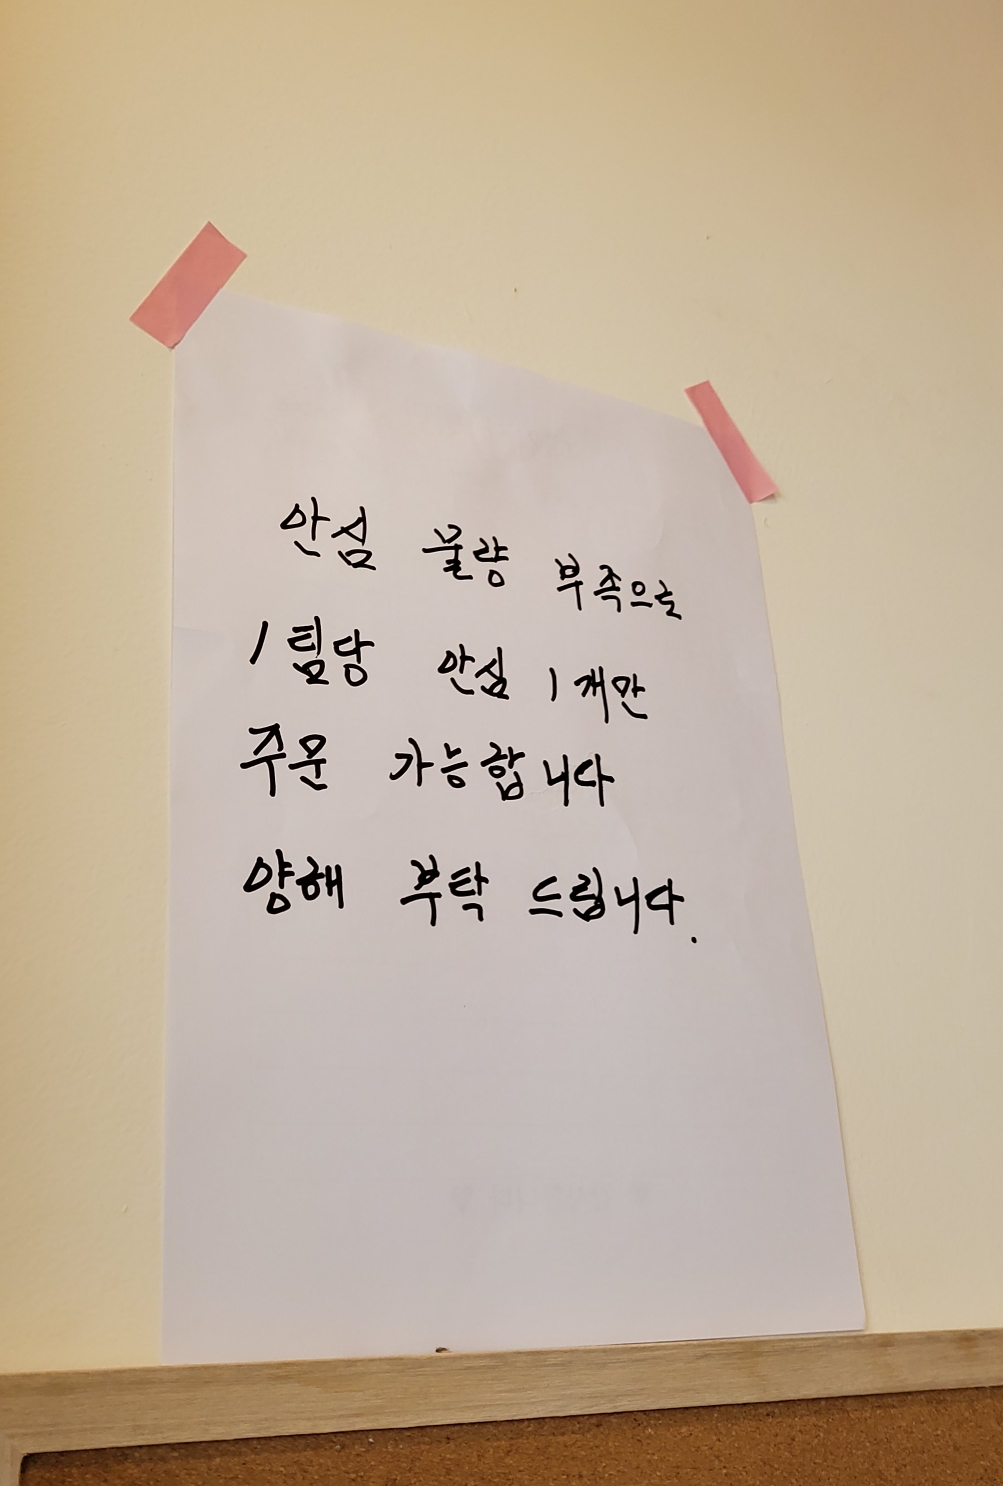 안심 물량 부족으로
1팀당 안심 1개만
주문 가능합니다
양해 부탁 드립니다.